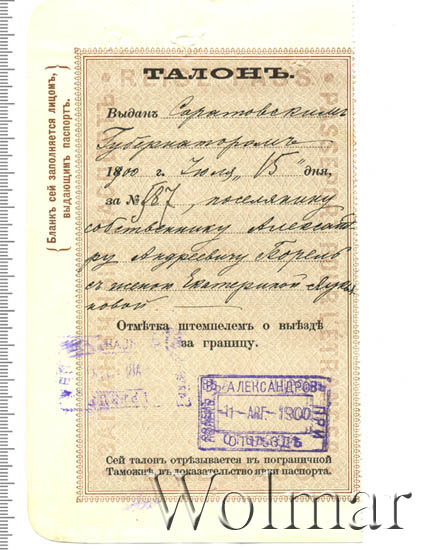 ТАЛОНЪ.
Выданъ Саратовскимъ
Губернаторомъ
1900 г. Іюля „15" дня,
за № 187, поселянину
собственнику Александ
ру Андреевичу Борель
съ женой Екатериной
новой
Отмѣтка штемпелемъ о выѣздѣ
за границу.
ВЪ АЛЕКСАНДРОВѢ
-1-АВГ-1900
ПРИ
ОТЪѢЗДѢ
Сей талонъ отрѣзывается въ пограничной
Таможнѣ, въ доказательство явки паспорта.
Бланкъ сей заполняется лицомъ,
выдающимъ паспортъ.
Wolmar